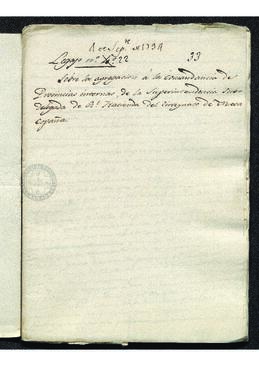 1 de Sep.re de 1794
Legajo nº 22 33
Sobre la agregacion á la Comandancia de
Provincias internas, de la Superintendencia Sub-
delegada de Rl. Hacienda del Virreynato de Nueva
España